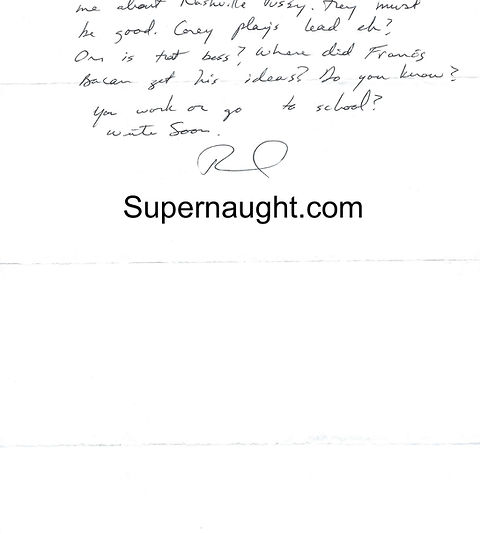 me about Nashville Pussy. They must
be good. Corey plays lead eh?
Or is that bass? Where did Francis
Bacan get his ideas? Do you know?
you work or go to school?
Write Soon.
Supernaught.com